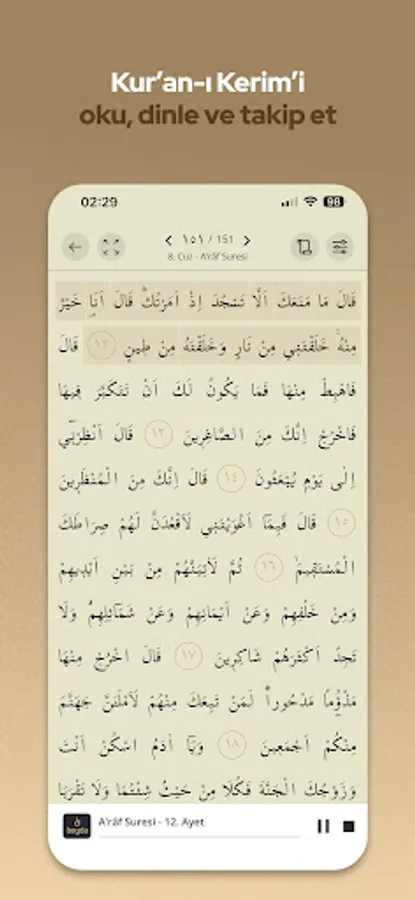 Kur'an-ı Kerim'i
oku, dinle ve takip et
02:29
98
١٥١ / 151
8. Cüz - A'râf Suresi
قَالَ مَا مَنَعَكَ اَلَّا تَسْجُدَ اِذْ اَمَرْتُكَۜ قَالَ اَنَا۬ خَيْرٌ
مِنْهُۚ خَلَقْتَن۪ي مِنْ نَارٍ وَخَلَقْتَهُ مِنْ ط۪ينٍ ١٢ قَالَ
فَاهْبِطْ مِنْهَا فَمَا يَكُونُ لَكَ اَنْ تَتَكَبَّرَ ف۪يهَا
فَاخْرُجْ اِنَّكَ مِنَ الصَّاغِر۪ينَ ١٣ قَالَ اَنْظِرْن۪ٓي
اِلٰى يَوْمِ يُبْعَثُونَ ١٤ قَالَ اِنَّكَ مِنَ الْمُنْظَر۪ينَ
١٥ قَالَ فَبِمَٓا اَغْوَيْتَن۪ي لَاَقْعُدَنَّ لَهُمْ صِرَاطَكَ
الْمُسْتَق۪يمَۙ ١٦ ثُمَّ لَاٰتِيَنَّهُمْ مِنْ بَيْنِ اَيْد۪يهِمْ
وَمِنْ خَلْفِهِمْ وَعَنْ اَيْمَانِهِمْ وَعَنْ شَمَٓائِلِهِمْۜ وَلَا
تَجِدُ اَكْثَرَهُمْ شَاكِر۪ينَ ١٧ قَالَ اخْرُجْ مِنْهَا
مَذْؤُ۫ماً مَدْحُوراًۜ لَمَنْ تَبِعَكَ مِنْهُمْ لَاَمْلَـَٔنَّ جَهَنَّمَ
مِنْكُمْ اَجْمَع۪ينَ ١٨ وَيَٓا اٰدَمُ اسْكُنْ اَنْتَ
وَزَوْجُكَ الْجَنَّةَ فَكُلَا مِنْ حَيْثُ شِئْتُمَا وَلَا تَقْرَبَا
A'râf Suresi - 12. Ayet